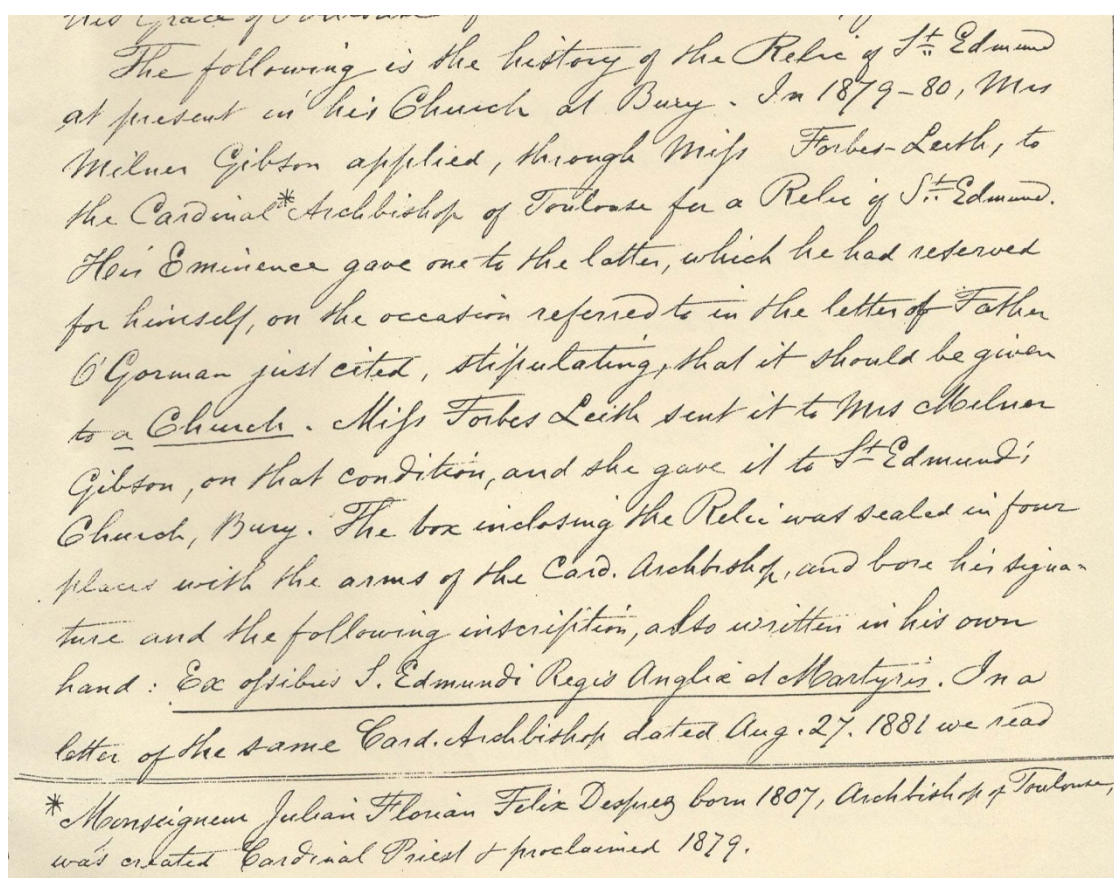 his Grace of Toulouse
The following is the history of the Relic of St. Edmund
at present in his Church at Bury. In 1879-80, Mrs
Milner Gibson applied, through Miss Forbes-Leith, to
the Cardinal* Archbishop of Toulouse for a Relic of St. Edmund.
His Eminence gave one to the latter, which he had reserved
for himself, on the occasion referred to in the letter of Father
O'Gorman just cited, stipulating, that it should be given
to a Church. Miss Forbes Leith sent it to Mrs Milner
Gibson, on that condition, and she gave it to St. Edmund's
Church, Bury. The box inclosing the Relic was sealed in four
places with the arms of the Card. Archbishop, and bore his signa-
ture and the following inscription, also written in his own
hand: Ex ossibus S. Edmundi Regis Angliæ et Martyris. In a
letter of the same Card. Archbishop dated Aug. 27. 1881 we read
* Monseigneur Julian Florian Felix Desprez born 1807, Archbishop of Toulouse,
was created Cardinal Priest & proclaimed 1879.